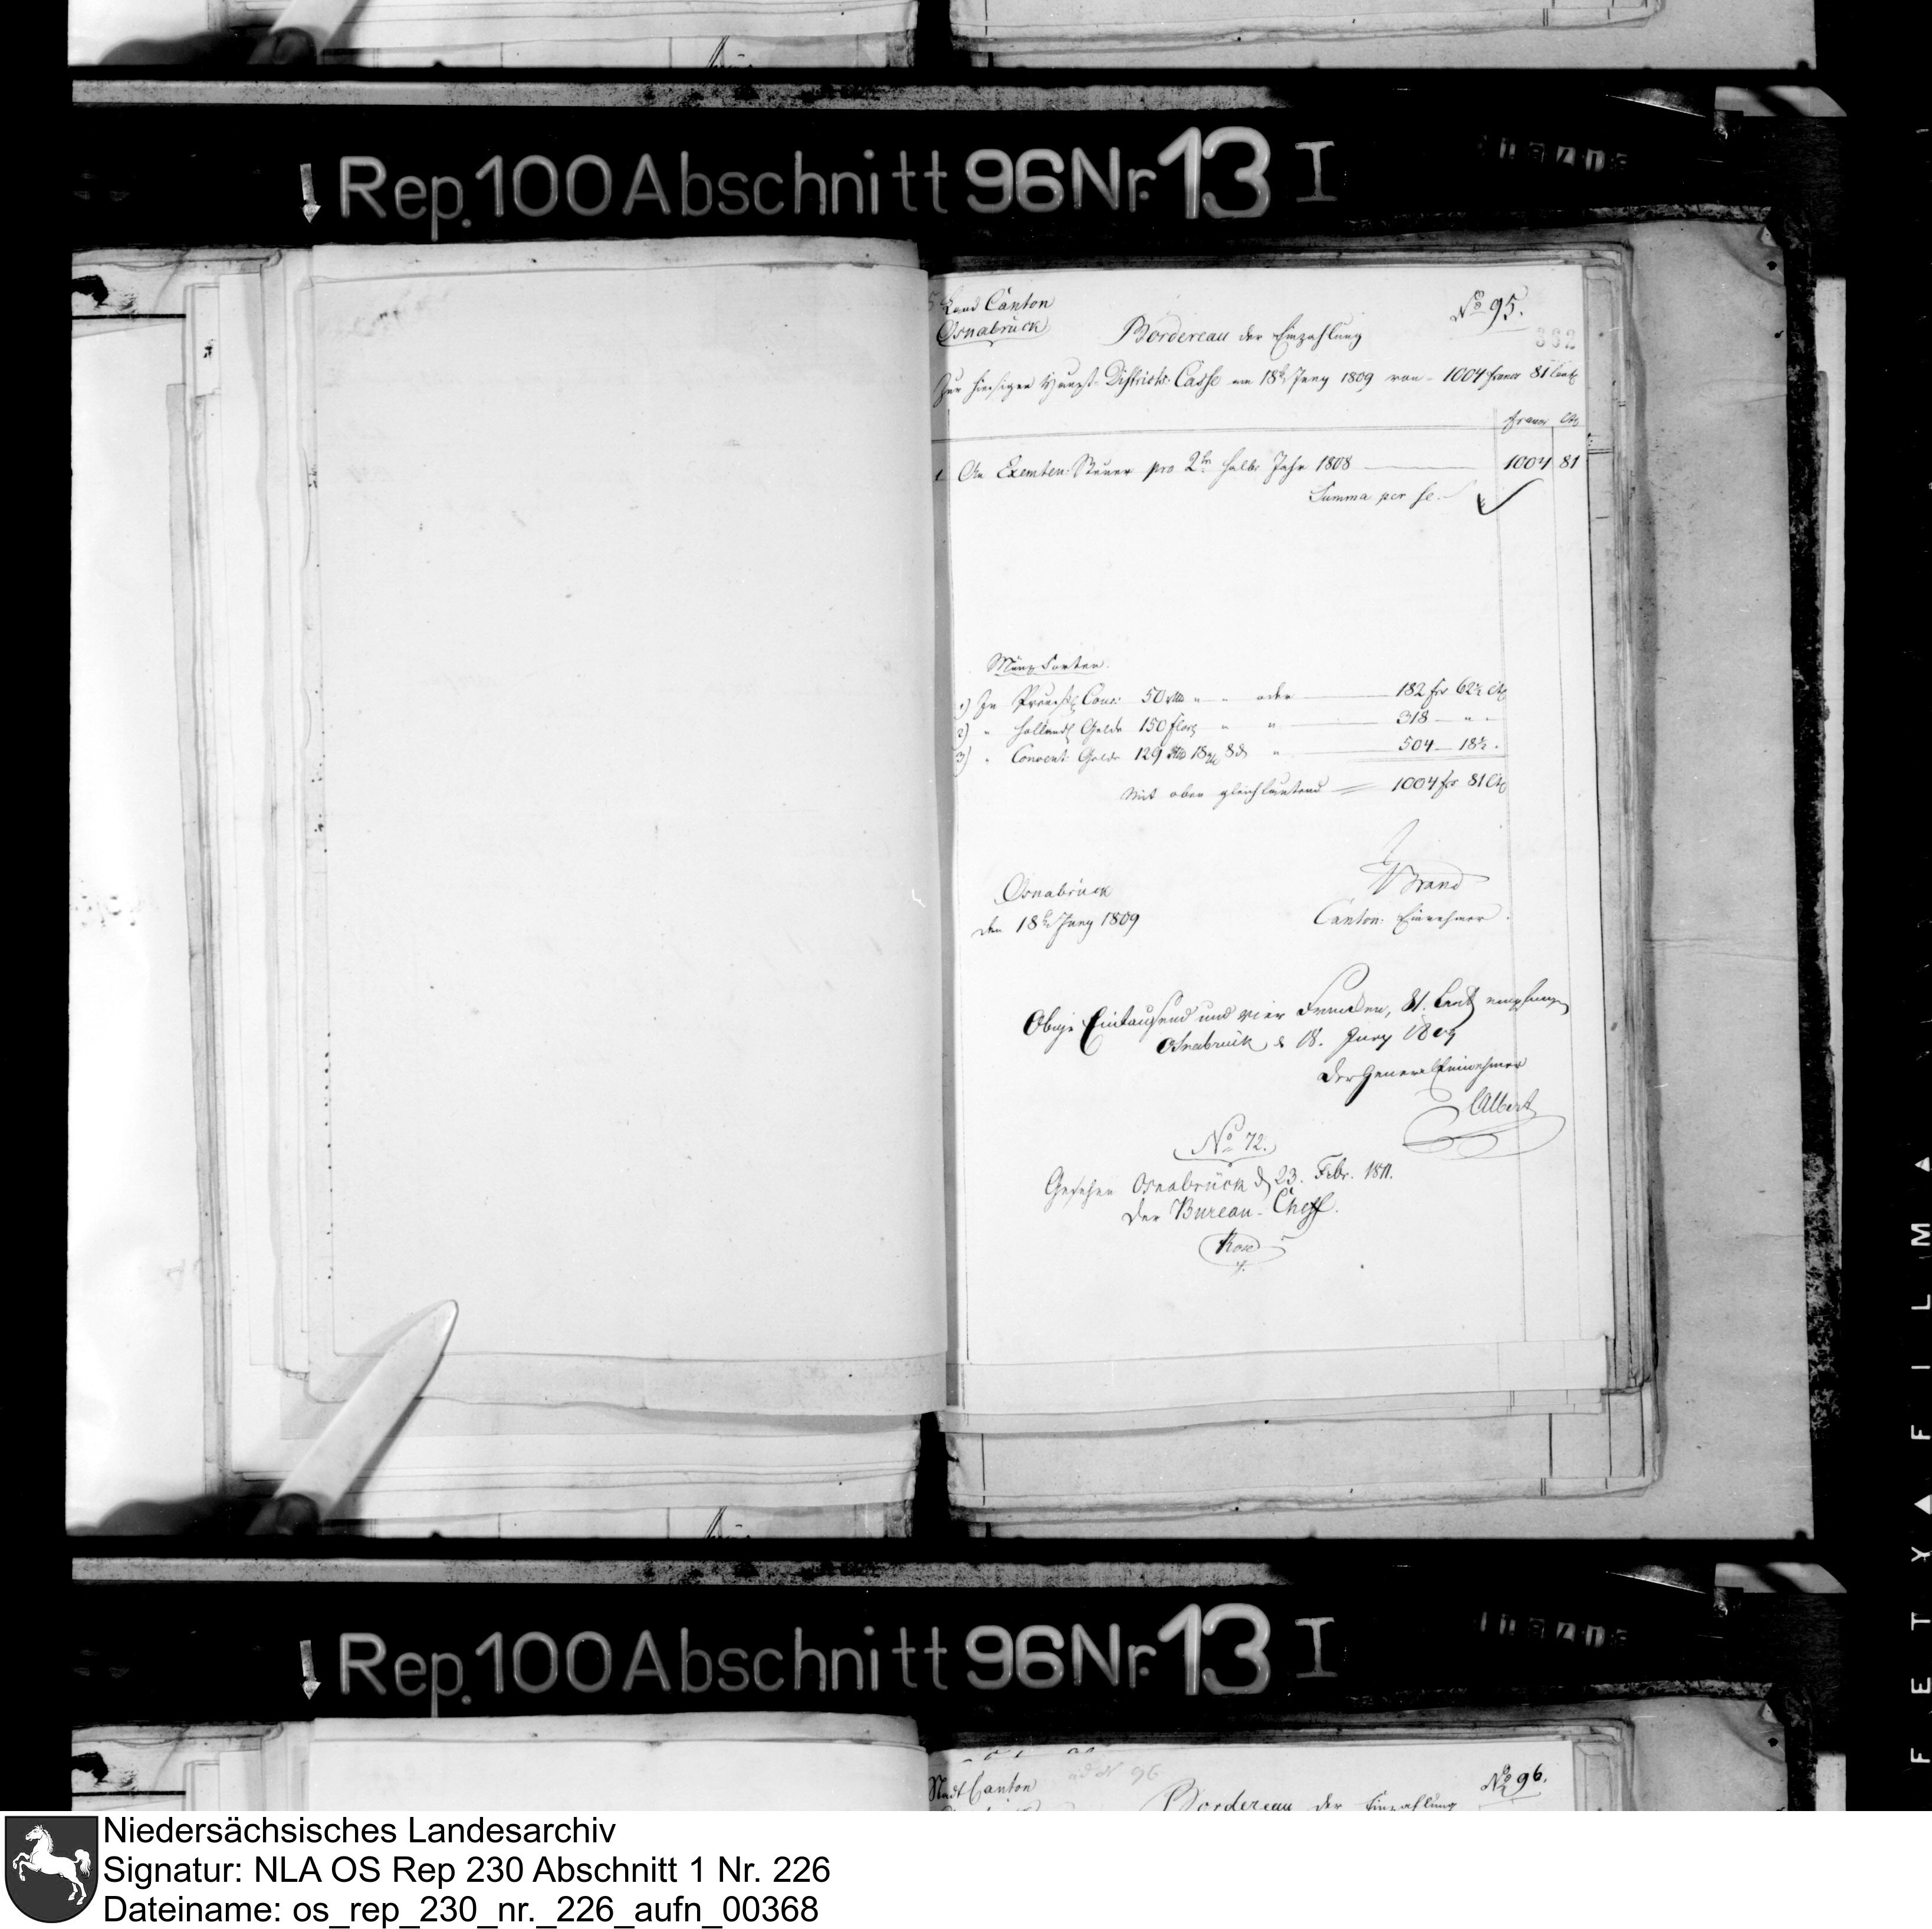 Rep. 100 Abschnitt 96 Nr. 13 I
Land Canton
Osnabrück
No 95.
Bordereau der Einzahlung
382
Zur hiesigen Haupt-Districts-Casse am 18t Juny 1809 von - 1004 francs 81 Cent
francs Cts
1 An Exemten-Steuer pro 2te halbe Jahr 1808 1004 81
Summa per se.
Münz Sorten.
1) In Preuss. Cour: 50 oder 182 fr 62½ Cts
2) " holländ. Gelde 150 flor " " 318 - " -
3) " Convent: Gelde 129 18 8 " 504 - 18½.
Mit oben gleichlautend 1004 fr 81 Cts
Osnabrück
den 18t Juny 1809
Brand
Canton: Einnehmer.
Obige Eintausend und vier Franken, 81. Cent empfangen
Osnabrück d 18. Juny 1809
der General Einnehmer
Albert
No 72.
Gesehen Osnabrück d 23. Febr. 1811.
Der Bureau-Cheff.
Rep. 100 Abschnitt 96 Nr. 13 I
Stadt Canton
ad No 96
No 96.
Bordereau der Einzahlung
SAFETY FILM
Niedersächsisches Landesarchiv
Signatur: NLA OS Rep 230 Abschnitt 1 Nr. 226
Dateiname: os_rep_230_nr._226_aufn_00368